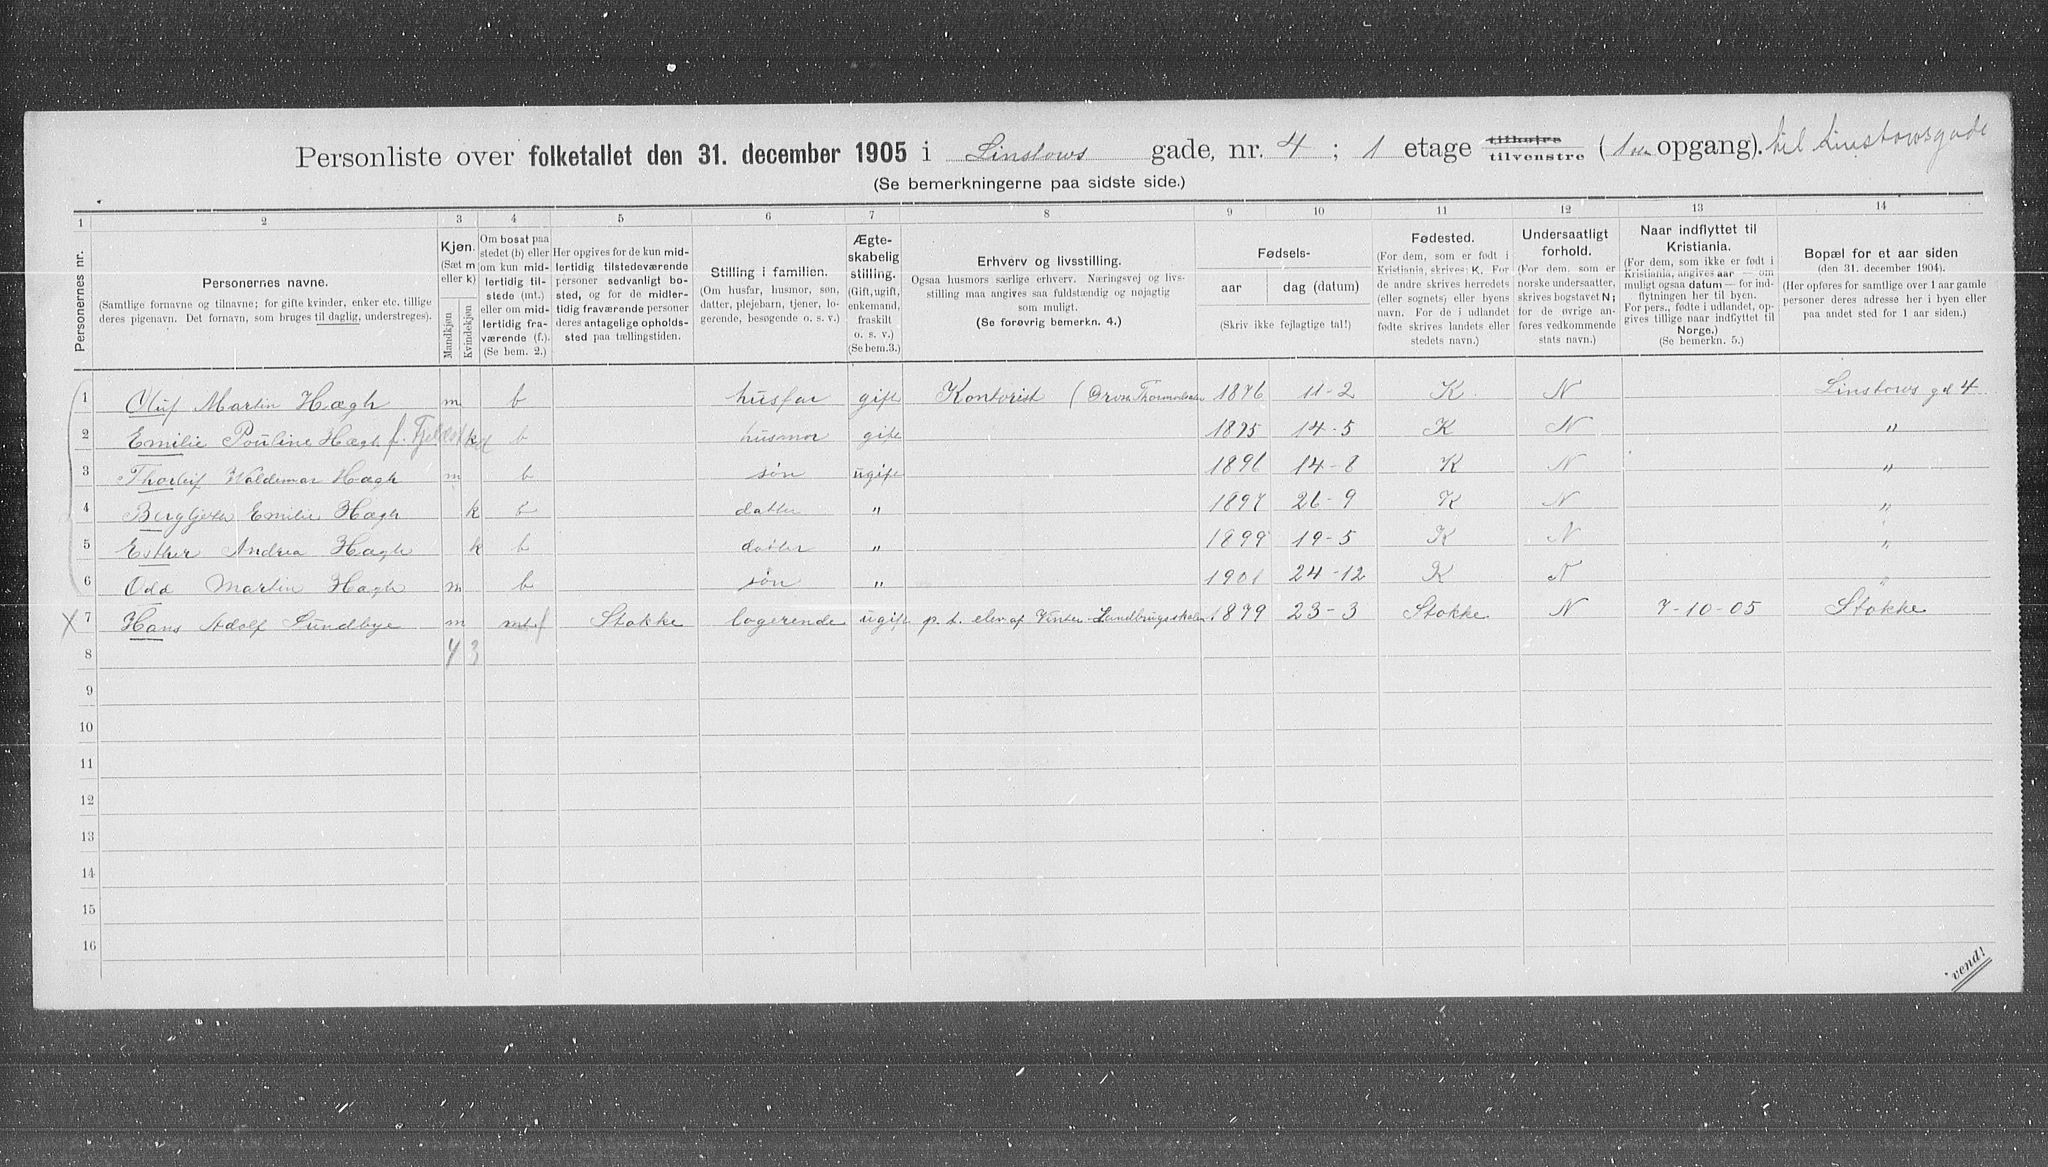 Personliste over folketallet den 31. december 1905 i Linstows gade, nr. 4 ; 1 etage tilhøjre tilvenstre (1ste opgang). til Linstowsgade
(Se bemerkningerne paa sidste side.)
1 2 3 4 5 6 7 8 9 10 11 12 13 14
Personernes nr.
Personernes navne.
(Samtlige fornavne og tilnavne; for gifte kvinder, enker etc. tillige
deres pigenavn. Det fornavn, som bruges til daglig, understreges).
Kjøn.
(Sæt m
eller k)
Mandkjøn
Kvindekjøn
Om bosat paa
stedet (b) eller
om kun mid-
lertidig til-
stede (mt.)
eller om mid-
lertidig fra-
værende (f.).
(Se bem. 2.)
Her opgives for de kun mid-
lertidig tilstedeværende
personer sedvanlig bo-
sted, og for de midler-
tidig fraværende personer
deres antagelige opholds-
sted paa tællingstiden.
Stilling i familien.
(Om husfar, husmor, søn,
datter, plejebarn, tjener, lo-
gerende, besøgende o. s. v.)
Ægte-
skabelig
stilling.
(Gift, ugift,
enkemand,
fraskilt
o. s. v.)
(Se bem.3.)
Erhverv og livsstilling.
Ogsaa husmors særlige erhverv. Næringsvej og livs-
stilling maa angives saa fuldstændig og nøjagtig
som muligt.
(Se forøvrig bemerkn. 4.)
Fødsels-
aar
dag (datum)
(Skriv ikke fejlagtige tal!)
Fødested.
(For dem, som er født i
Kristiania, skrives: K. For
de andre skrives herredets
(eller sognets) eller byens
navn. For de i udlandet
fødte skrives landets eller
stedets navn.)
Undersaatligt
forhold.
(For dem, som er
norske undersaatter,
skrives bogstavet N;
for de øvrige an-
føres vedkommende
stats navn.)
Naar indflyttet til
Kristiania.
(For dem, som ikke er født i
Kristiania, angives aar — om
muligt ogsaa datum — for ind-
flytningen her til byen.
For pers., fødte i udlandet, op-
gives tillige naar indflyttet til
Norge.)
(Se bemerkn. 5.)
Bopæl for et aar siden
(den 31. december 1904).
(Her opføres for samtlige over 1 aar gamle
personer deres adresse her i byen eller
paa andet sted for 1 aar siden.)
1 Oluf Martin Hægh m b husfar gift Kontorist 1876 11-2 K. N Linstows gd 4
2 Emilie Pouline Hægh f. k b husmor gift 1875 14-5 K N "
3 Thorleif Waldemar Hægh m b søn ugift 1896 14-8 K N "
4 Emilie Hægh k b datter " 1897 26-9 K N "
5 Esther Andrea Hægh k b datter " 1899 19-5 K N "
6 Odd Martin Hægh m b søn " 1901 24-12 K N "
X 7 Hans Adolf Sundbye m mt Stokke logerende ugift p. t. elev af Vinter-Landbrugsskolen 1879 23-3 Stokke N 7-10-05 Stokke
8 4 3
9
10
11
12
13
14
15
16
vend!